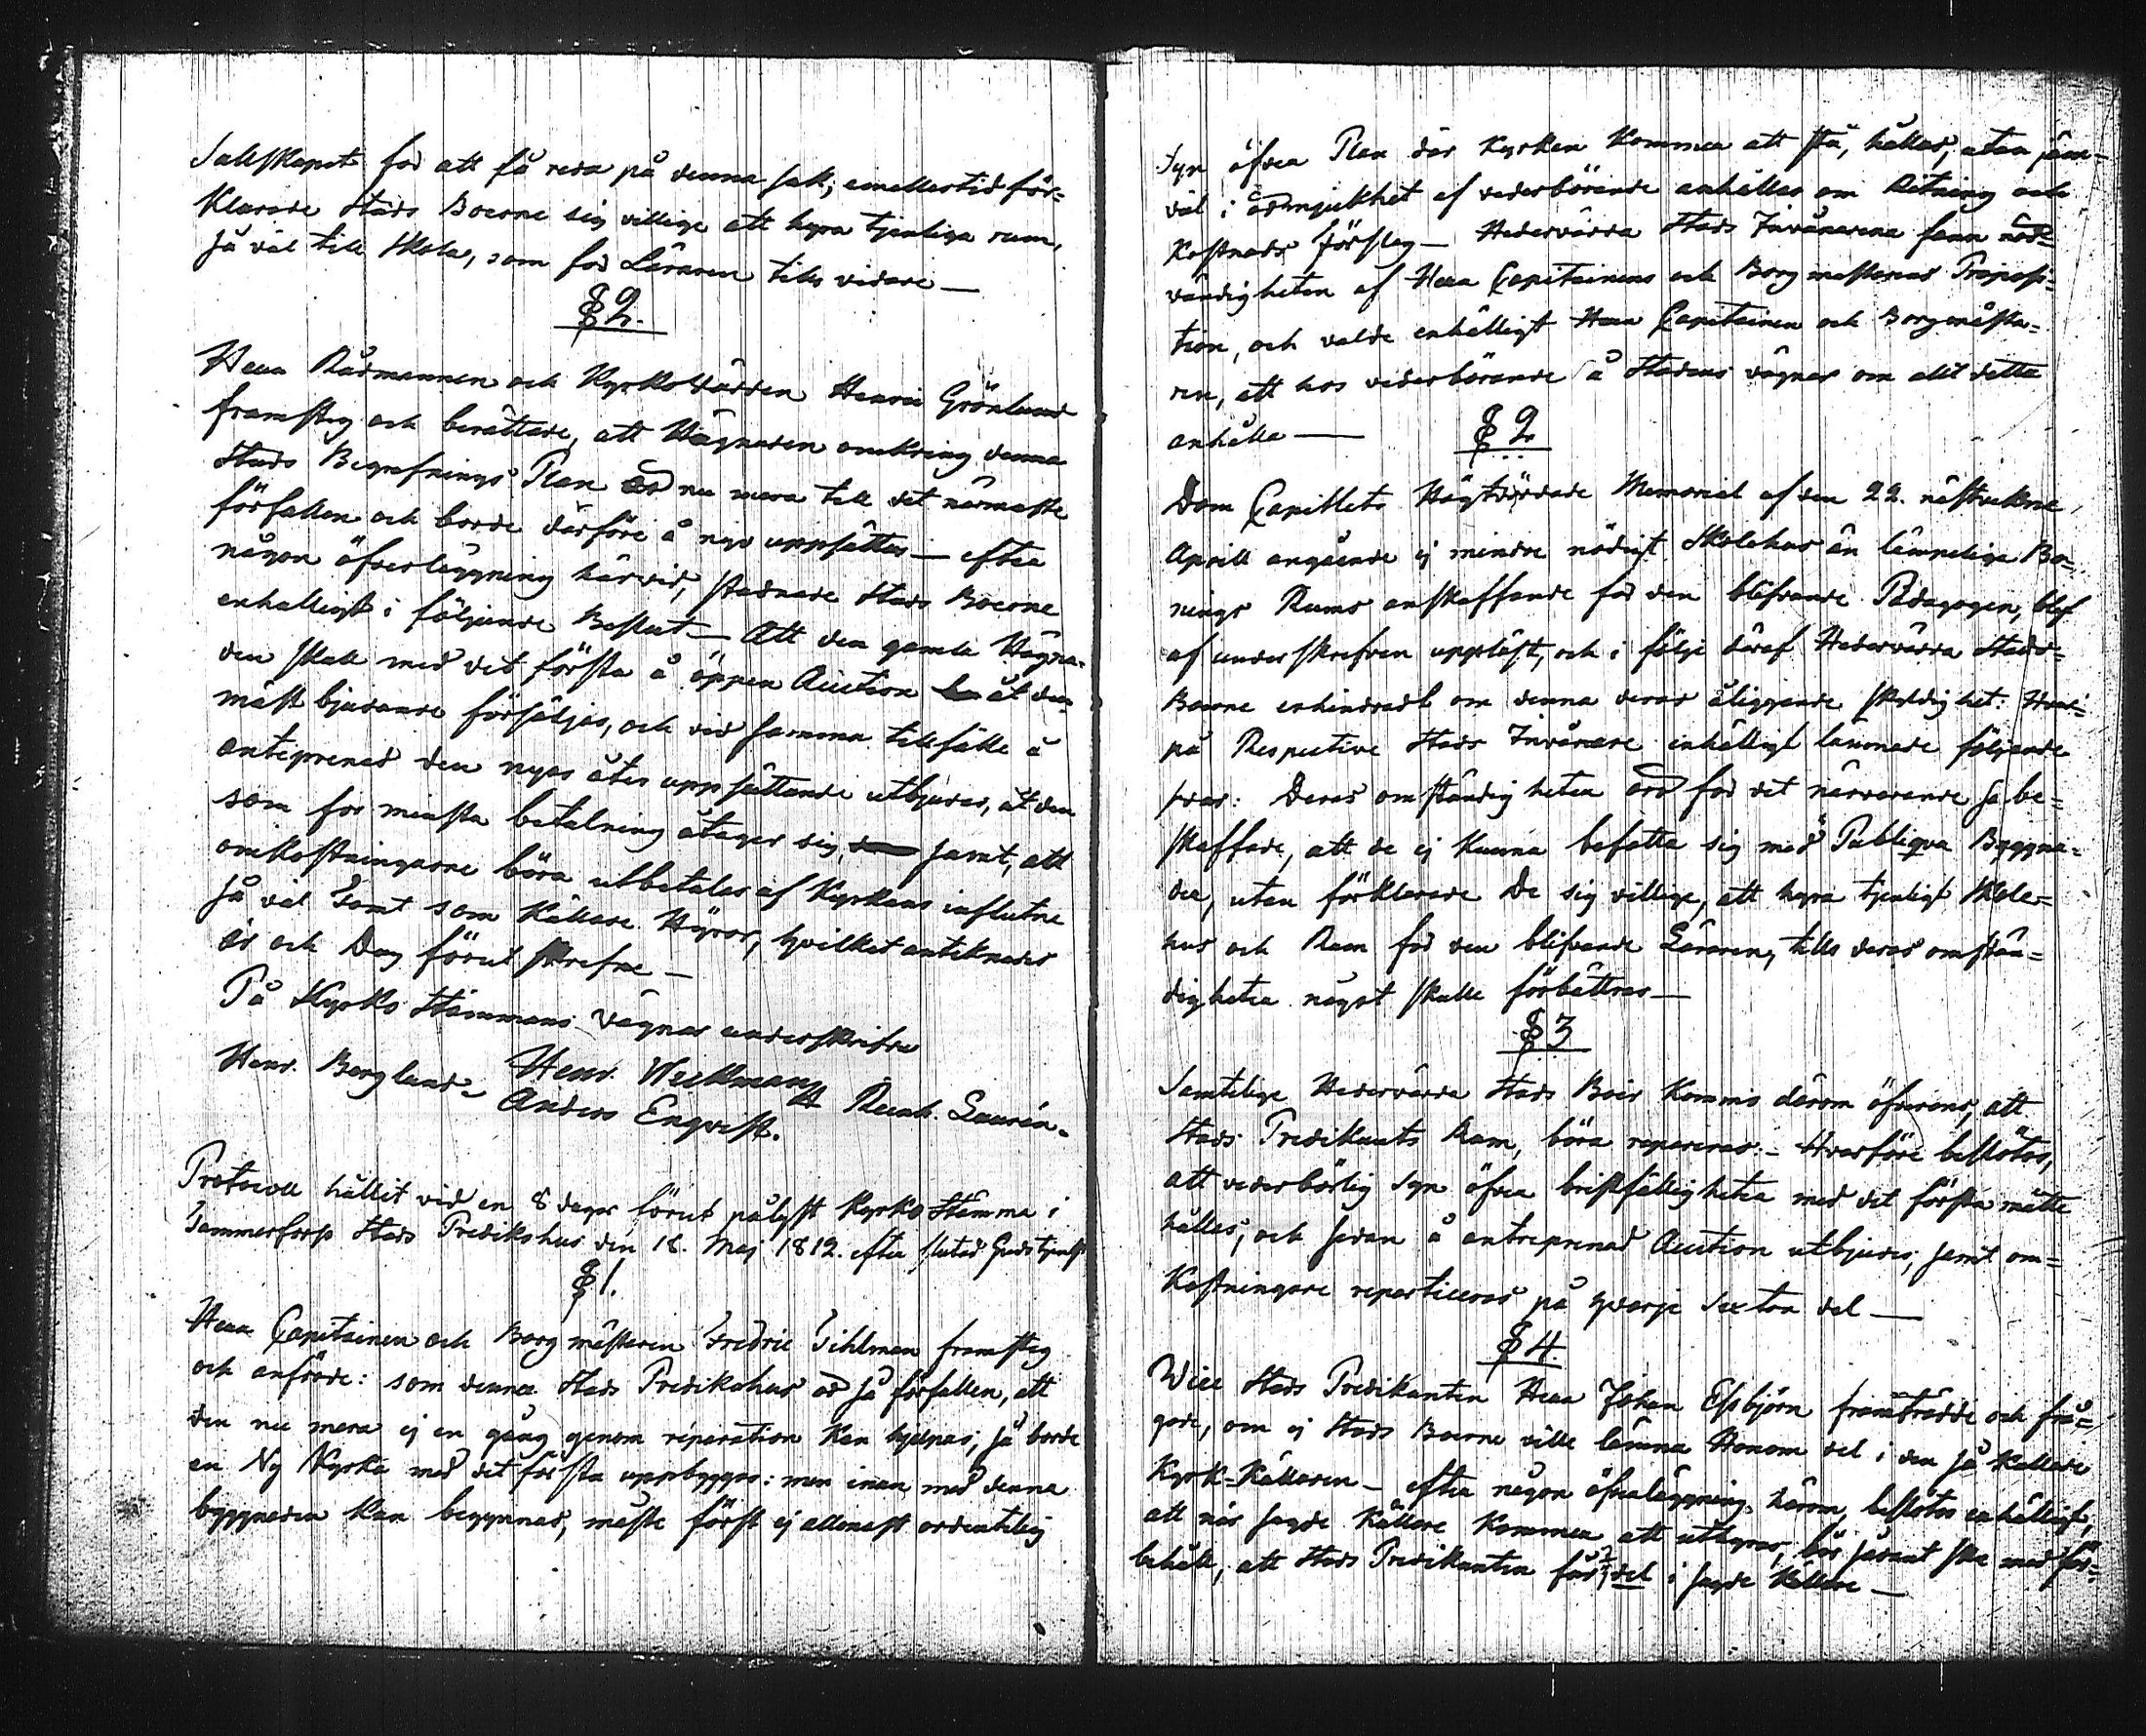 Sällskapet för att få reda på denna sak; emellertid för=
klarade Stads Boerne sig villige att hyra tjenliga rum,
så väl till Skola, som för Läraren tills vidare —
§ 2.
Herr Rådmannen och Kyrkovärden Henric Grönlund
framsteg och berättade, att Hägnaden omkring denna
Stads Begrafnings Plan är nu mera till det närmaste
förfallen och borde därföre å nyo uppsättas — efter
någon öfverläggning härvid, stadnade Stads Boerne
enhälligt i följande Beslut — Att den gamla Hägna=
den skall med det första å öppen Auction åt den
mäst bjudande försäljas, och vid samma tillfälle å
anteprenad den nyas åter uppsättande utbjudas, åt den
som för minsta betalning åtager sig, samt, att
omkostningarne böra utbetalas af Kyrkans influtne
så väl Tomt som Källare Hyror, hvilket antecknades
år och Dag förut skrefne —
På Kyrko Stämmans vägnar underskrifva
Henr. Berglund. Henr. Wellman Reinh. Laurén.
Anders Enqvist.
Protocoll hållit vid en 8 dagar förut pålyst Kyrko Stämma i
Tammerfors Stads Predikohus den 18. Maj 1812. efter slutad Gudstjenst
§ 1.
Herr Capitainen och Borgmästaren Fredric Tihlman framsteg
och anförde: som denna Stads Predikohus är så förfallen, att
den nu mera ej en gång genom reparation kan hjelpas, så borde
en Ny Kyrka med det första uppbyggas: men innan med denna
byggnaden kan begynnas, måste först ej allenast ordentelig
Syn öfver Plan där Kyrkan kommer att stå, hållas, utan jäm=
väl i ödmjukhet af vederbörande anhållas om Ritning och
Kostnads Förslag — Hedervärda Stads Invånarena fann nöd=
vändigheten af Herr Capitainens och Borgmästarens Proposi=
tion, och valde enhälligt Herr Capitainen och Borgmästa=
ren, att hos vederbörande å Stadens vägnar om allt detta
anhålla —
§ 2
Dom Capitlets Högtvördade Memorial af den 22. nästvekne
Aprill angående ej mindre nödigt Skolehus än lämpeliga Bo=
nings Rums anskaffande för den blifvande Pædagogen, blef
af underskrefven uppläst, och i följe däraf Hedervärda Stads=
Boerne erhindradt om denna deras åliggande skyldighet: Hvar=
på Respective Stads Invånare enhälligt lämnade följande
svar: Deras omständigheter äro för det närvarande så be=
skaffade, att de ej kunna befatta sig med Publiqva Byggna=
der, utan förklarade De sig villige, att hyra tjenligt Skole=
hus och Rum för den blifvande Läraren, tills deras omstän=
digheter något skulle förbättras —
§ 3
Samtelige Hedervärda Stads Boer kommo därom öfverens, att
Stads Predikants Rum, böra repareras. — Hvarföre beslöts,
att vederbörlig Syn öfver bristfälligheter med det första måtte
hålles, och sedan å entreprenad Auction utbjudes, samt om=
kostningare reparticeras på hvarje Sexton del —
§ 4.
Vice Stads Predikanten Herr Johan Elfsbjörn framträdde och frå=
gade, om ej Stads Boerne ville lämna Honom del i den så kallade
Kyrk-Källaren — efter någon öfverläggning härom, beslöts enhälligt,
att när sagde Källare kommer att uthyras, bör sådant ske med för=
behåll, att Stads Predikanten får del i sagde Källare —